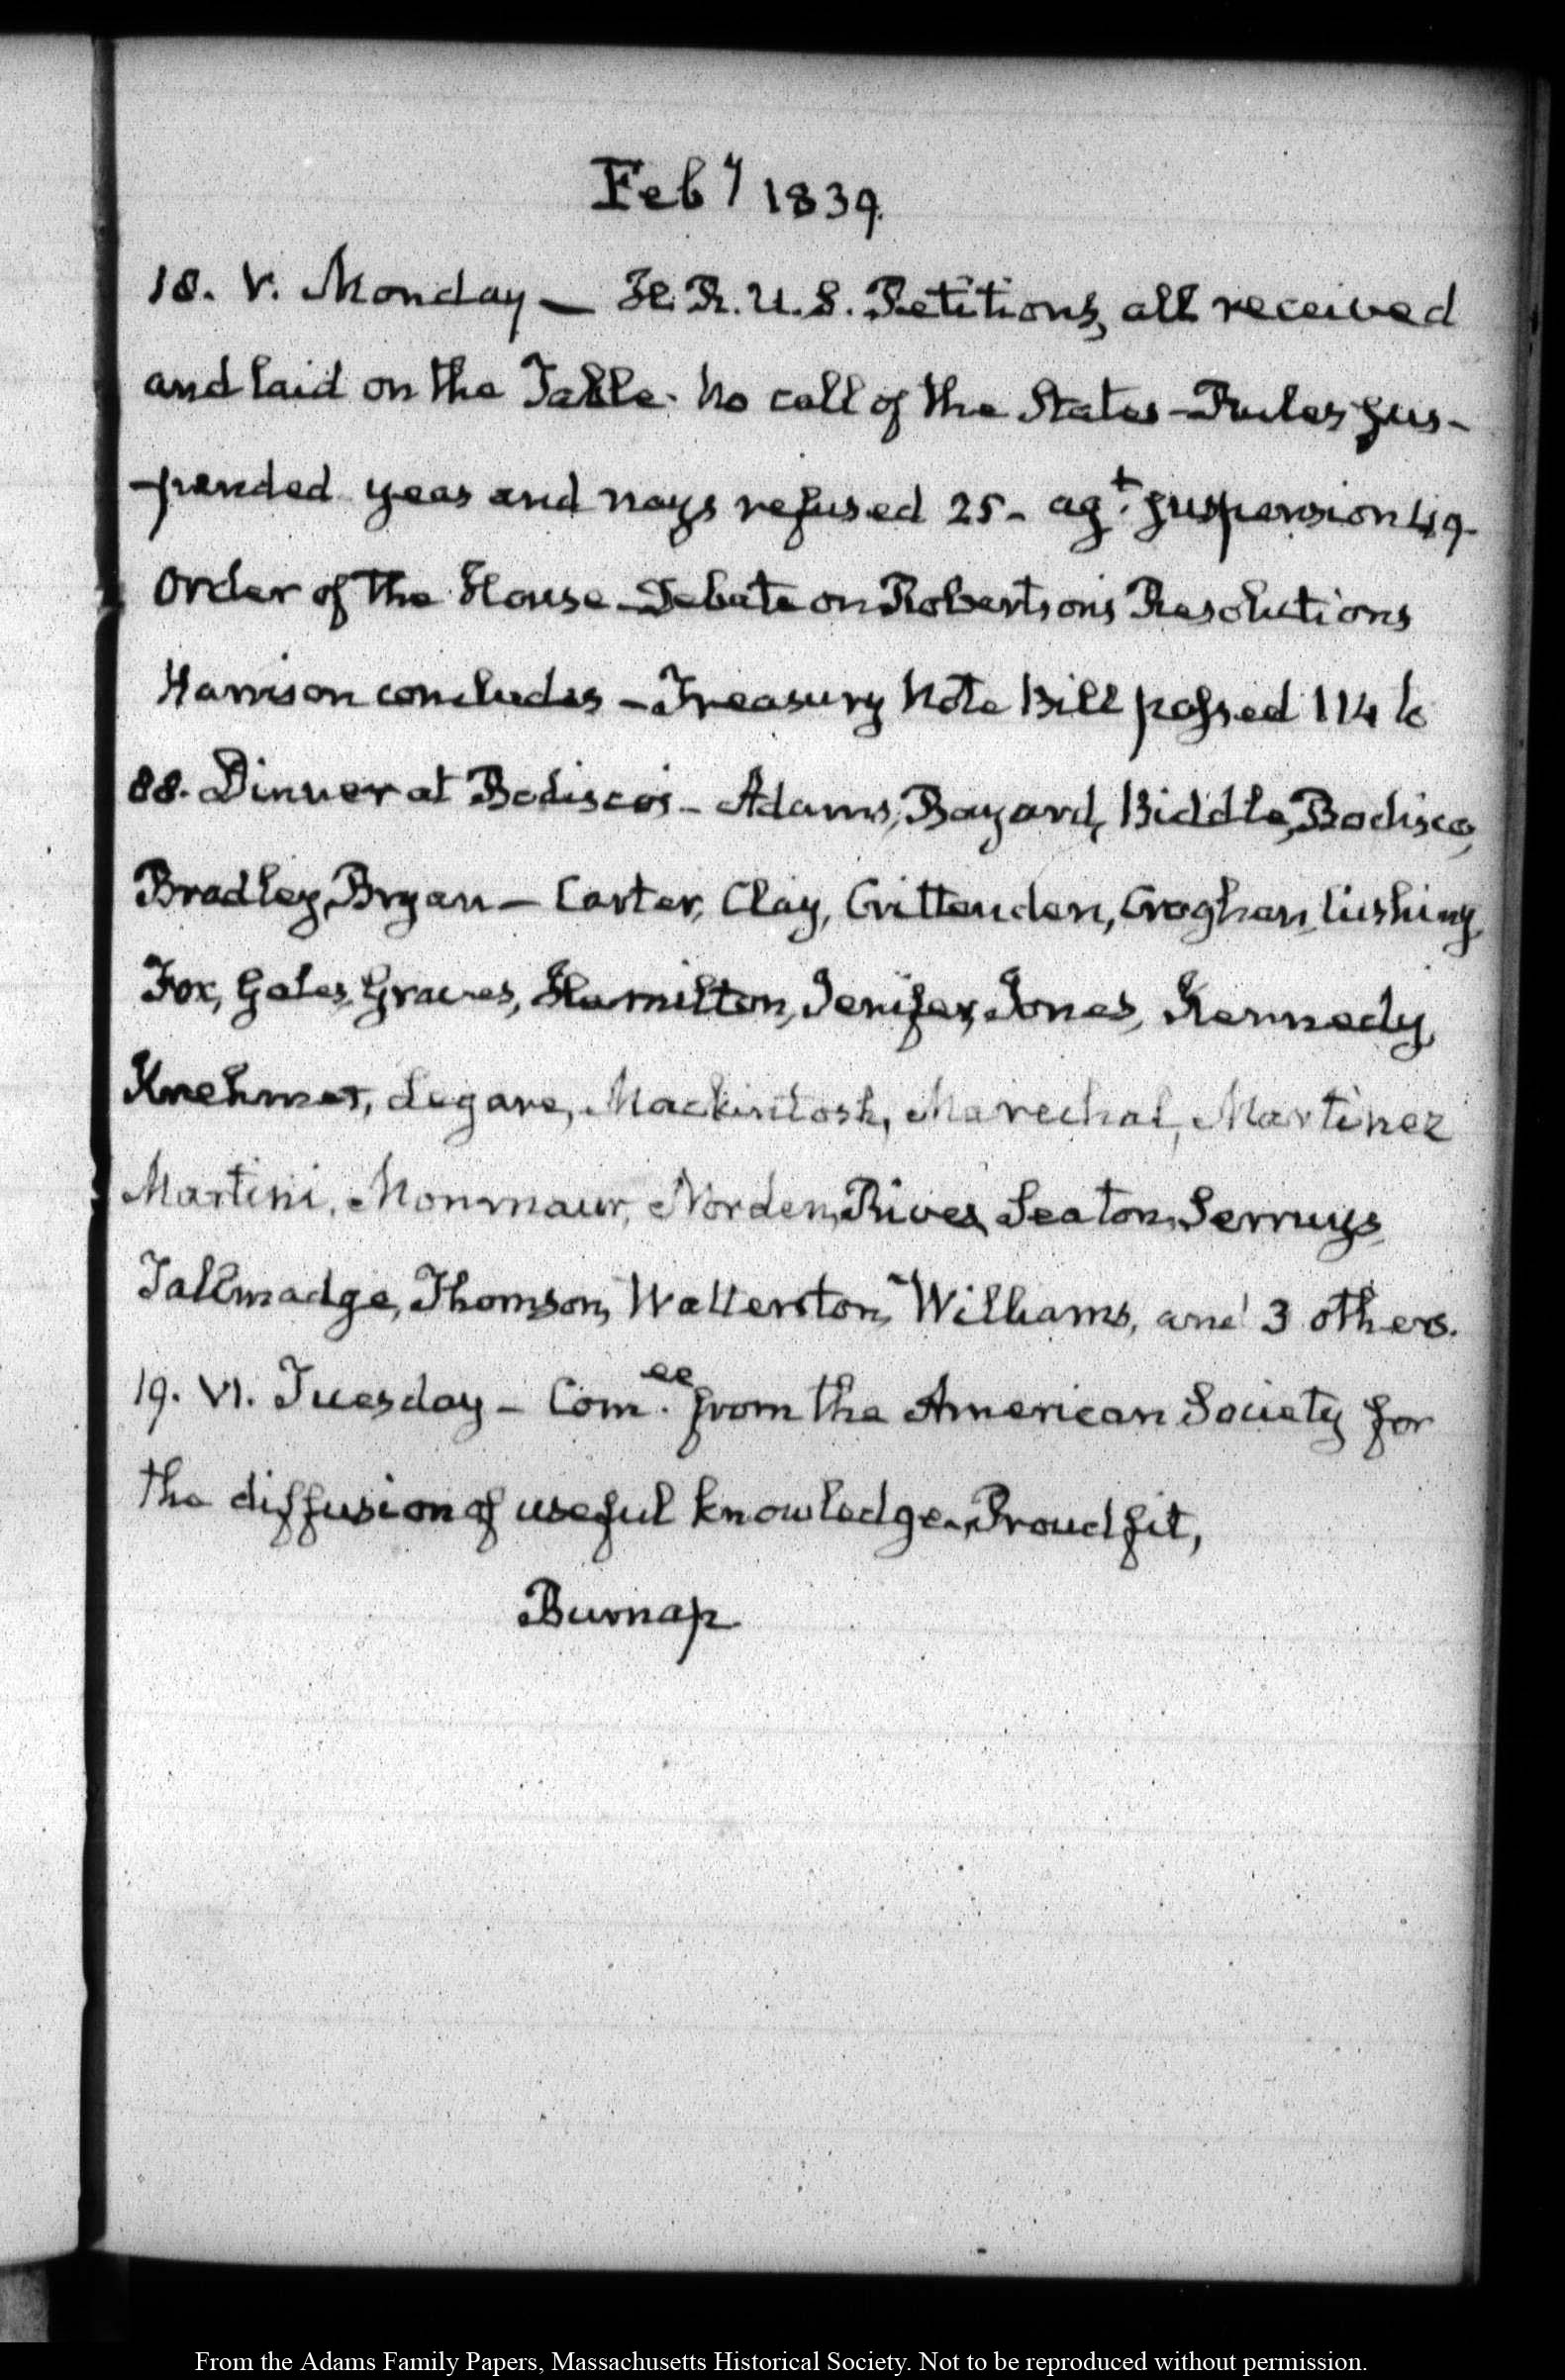 Feby 1839.
18. V. Monday — H. R. U. S. Petitions, all received
and laid on the Table. No call of the States — Rules sus-
-pended yeas and nays refused 25 - agt. suspension 49-
Order of the House — Debate on Robertson's Resolutions
Harrison concludes — Treasury Note Bill passed 114 to
88. Dinner at Bodisco's — Adams, Bayard, Biddle, Bodisco,
Bradley, Bryan — Carter, Clay, Crittenden, Croghan, Cushing,
Fox, Gales, Graves, Hamilton, Jenifer, Jones, Kennedy,
Krehmer, Legare, Mackintosh, Marechal, Martinez
Martini, Montmaur, Norden, Rives, Seaton, Serruys,
Tallmadge, Thomson, Watterston, Williams, and 3 others.
19. VI. Tuesday — Comee. from the American Society for
the diffusion of useful knowledge. Proudfit,
Burnap
From the Adams Family Papers, Massachusetts Historical Society. Not to be reproduced without permission.